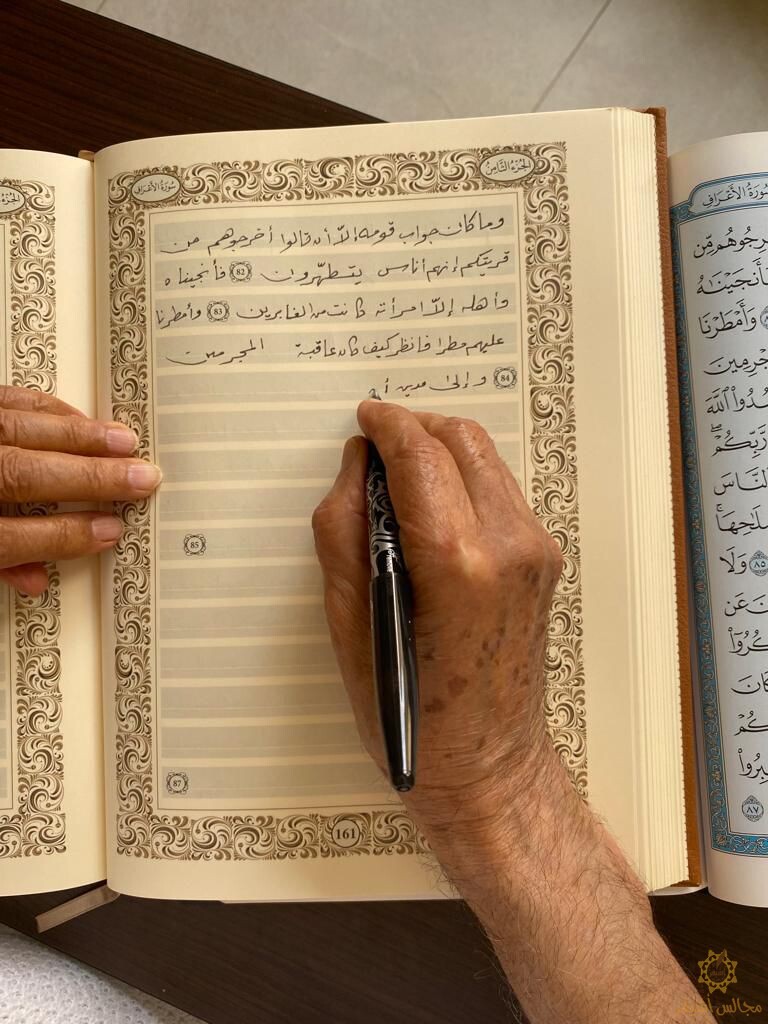 الجُزْءُ الثَّامِنُ
سُورَةُ الأَعْرَافِ
وما كان جواب قومه إلّا أن قالوا أخرجوهم من
قريتكم إنهم أناس يتطهّرون 82 فأنجيناه
وأهله إلّا امرأته كانت من الغابرين 83 وأمطرنا
عليهم مطرا فانظر كيف كان عاقبة المجرمين
84 وإلى مدين أ
85
87
161
سُورَةُ الأَعْرَافِ
رِجُوهُم مِّن
فَأَنجَيْنَٰهُ
وَأَمْطَرْنَا
جْرِمِينَ
بُدُوا۟ ٱللَّهَ
رَّبِّكُمْ ۖ
ٱلنَّاسَ
لَٰحِهَا ۚ
٨٥ وَلَا
نَ عَن
كُرُوٓا۟
كَانَ
كُمْ
بِرُوا۟
٨٧
مجالس